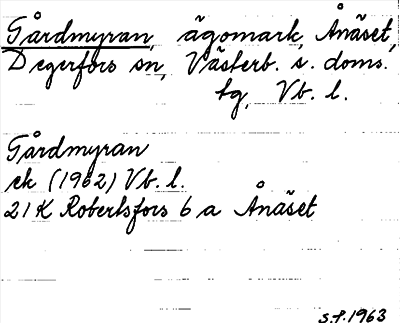 Gårdmyran, ägomark, Ånäset,
Degerfors sn, Västerb. s. doms.
tg, Vb. l.
Gårdmyran
ek (1962) Vb. l.
21K Robertsfors 6 a Ånäset
S.f. 1963